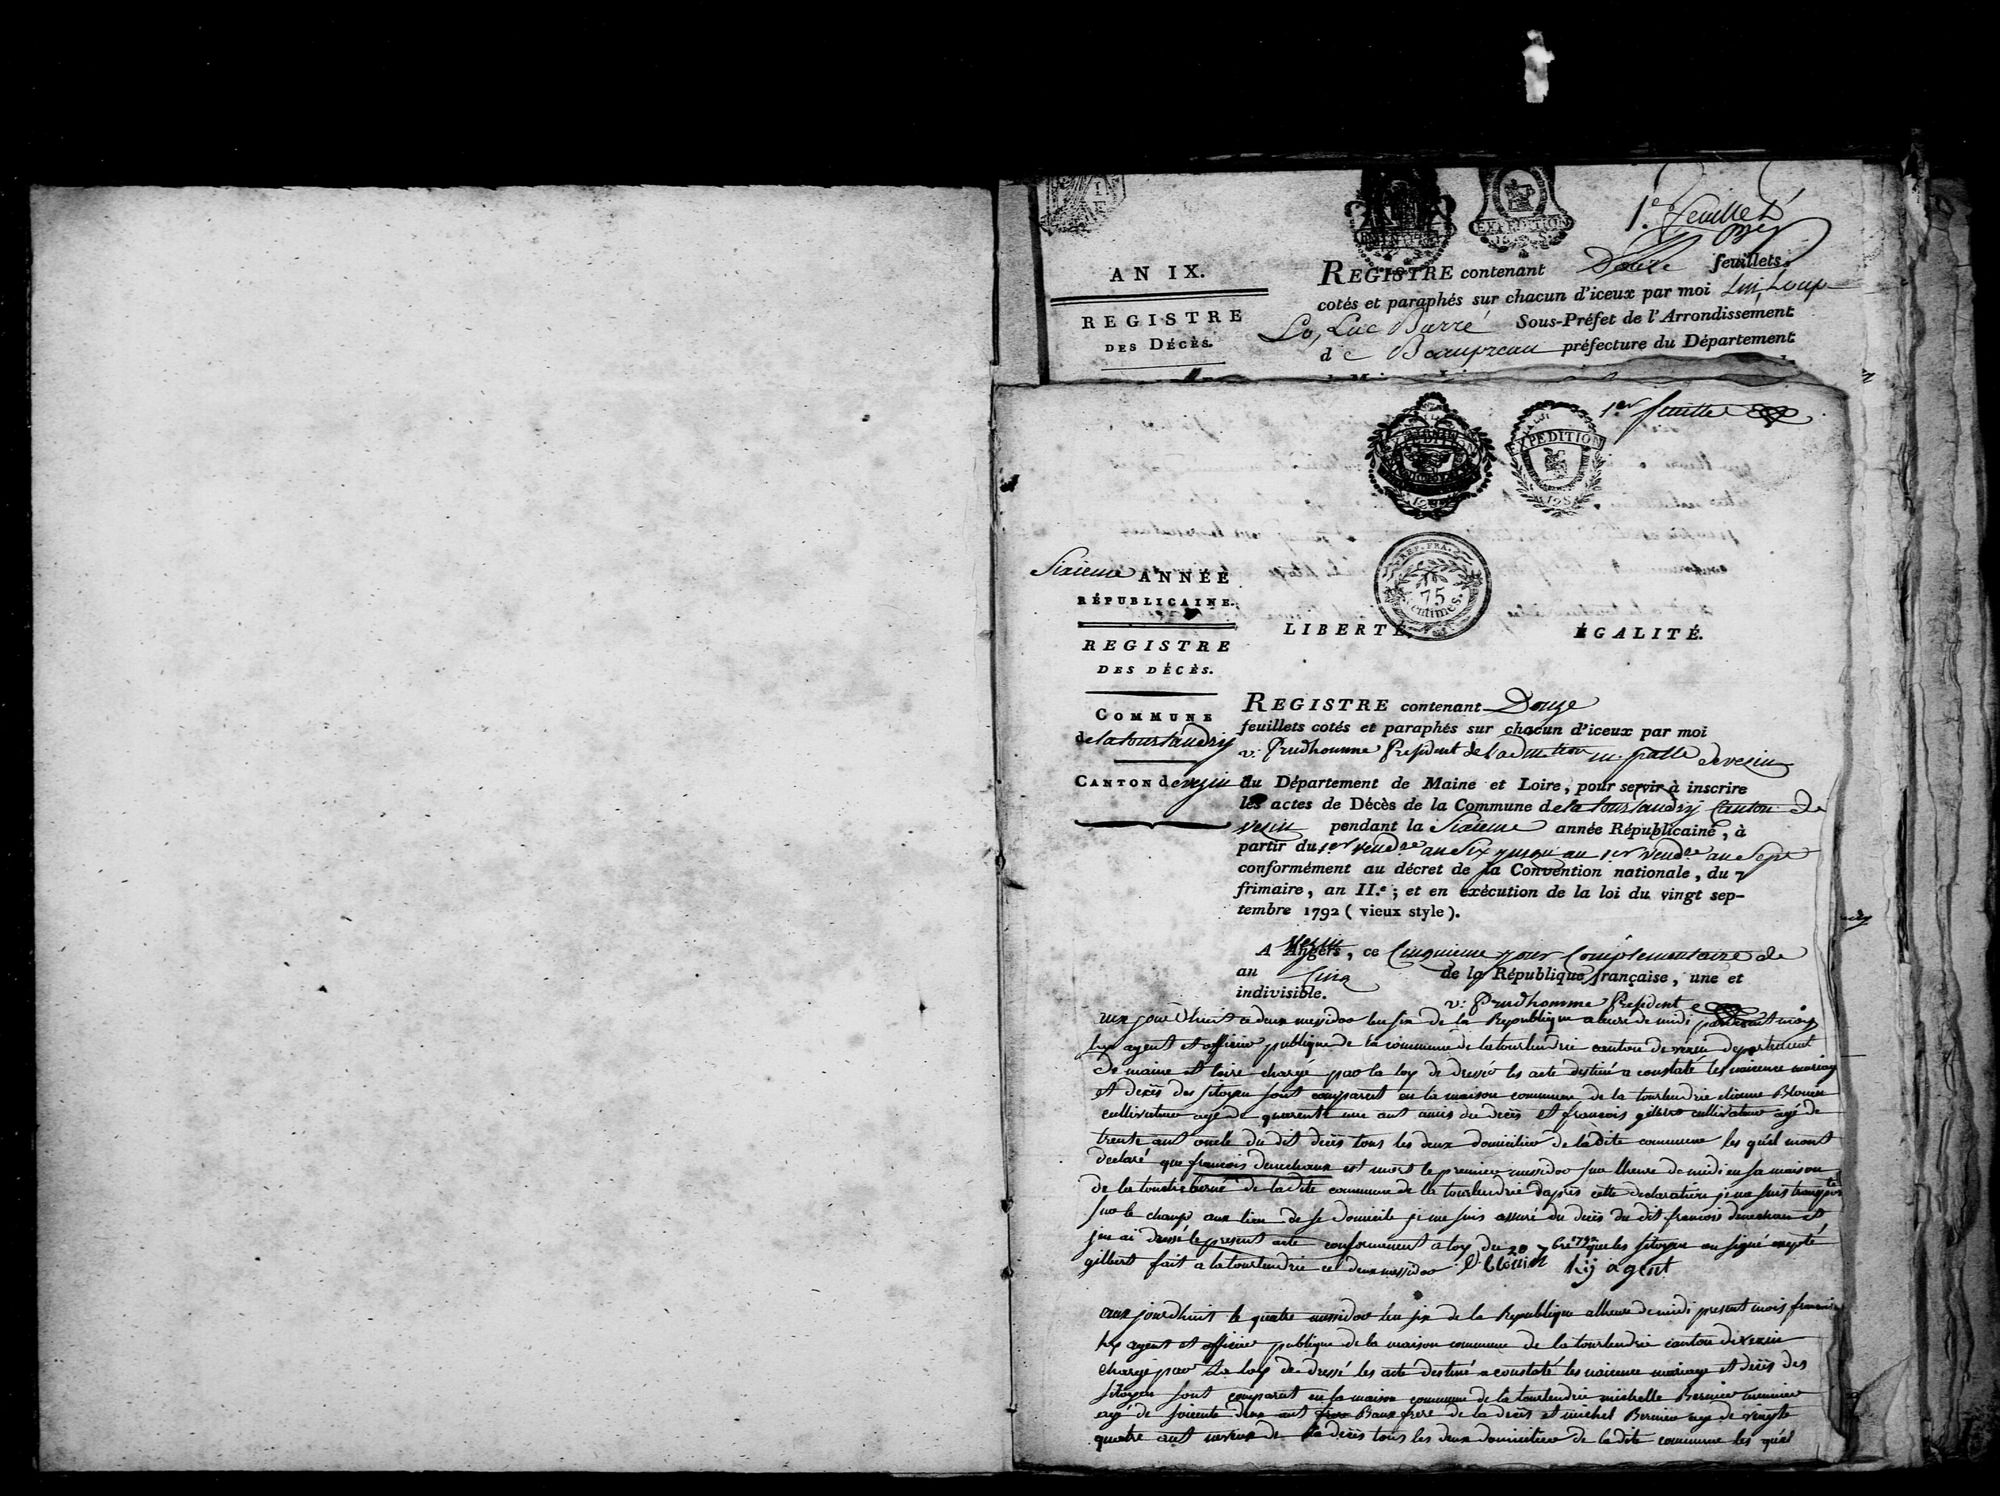 1.e feuillet
AN IX.
REGISTRE
DES DÉCÈS.
REGISTRE contenant Douze feuillets
cotés et paraphés sur chacun d'iceux par moi
Luc Barré Sous-Préfet de l'Arrondissement
de Beaupreau préfecture du Département
EXPEDITION
1.er feuillet
EXPEDITION
REP. FRA.
75
centimes.
Sixieme ANNÉE
RÉPUBLICAINE.
LIBERTÉ, ÉGALITÉ.
REGISTRE
DES DÉCÈS.
COMMUNE
de la tourlandry
CANTON de vezin
REGISTRE contenant Douze
feuillets cotés et paraphés sur chacun d'iceux par moi
v: Prudhomme President de vezin
du Département de Maine et Loire, pour servir à inscrire
les actes de Décès de la Commune de la tourlandry Canton de
vezin pendant la Sixieme année Républicaine, à
partir du 1er vend.re an Six jusqu'au 1er vend.re an Sept
conformément au décret de la Convention nationale, du 7
frimaire, an II.e; et en exécution de la loi du vingt sep-
tembre 1792 (vieux style).
A Angers, vezin ce Cinquieme jour Complementaire de
an Cinq de la République française, une et
indivisible.
v: Prudhomme President
aux jourdhuit ce deux messidor lan six de la Republique a heure de midi par devant moy
agent et officier publique de la commune de la tourlendrie canton de vezin departement
de maine et loire chargé par la loy de dressé les acte destiné a constaté les naicence mariag
et decès des sitoyen sont comparut en la maison commune de la tourlendrie etienne Blouin
cultivateur agé de quarente une ant amis du decès et francois gilbert cultivateur agé de
trente ant oncle du dit decès tous les deux domicilier de la dite commune les quel mont
declaré que francois denechaux est mort le premier messidor sur lheure de midi en sa maison
de la de la dite commune de la tourlendrie daprès cette declaration je me suis transporté
sur le champ aux lieu de se domicile je me suis assuré du decès du dit francois denechaux et
jen ai dressé le present acte conformement a loy du 20 7bre 1792 que les sitoyen on signé excepté
gilbert fait a la tourlendrie ce deux messidor E blouin agent
aux jourdhuit le quatre messidor lan six de la Republique a lheure de midi present mois francois
agent et officier publique de la maison commune de la tourlendrie canton de vezin
chargé par la loy de dressé les acte destiné a constaté les naicence mariage et decès des
sitoyen sont comparut en la maison commune de la tourlendrie michelle Bernier
agé de soicente deux ant Beaux frere de la decès et michel Bernier agé de vingte
quatre ant neveux de la decès tous les deux domicilier de la dite commune les quel